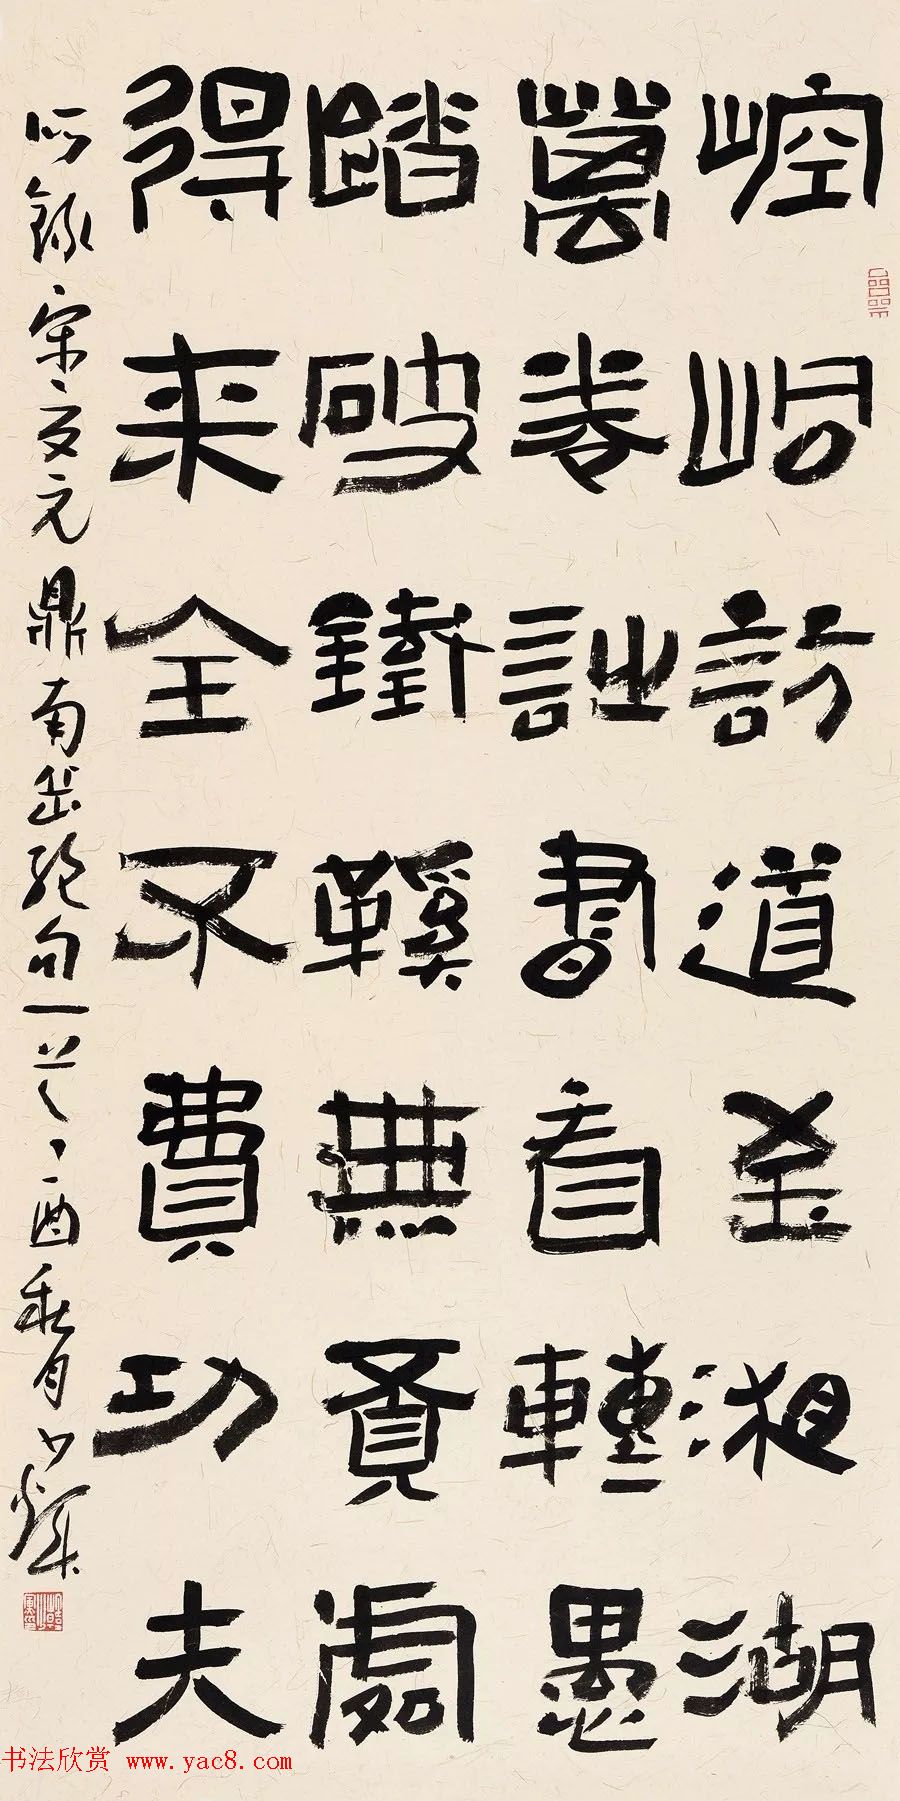 崆峒訪道至湘湖
萬卷詩書看轉愚
踏破鐵鞵無覓處
得来全不費功夫
錄宋夏元鼎南岳絕句一首丁酉秋月
书法欣赏 www.yac8.com